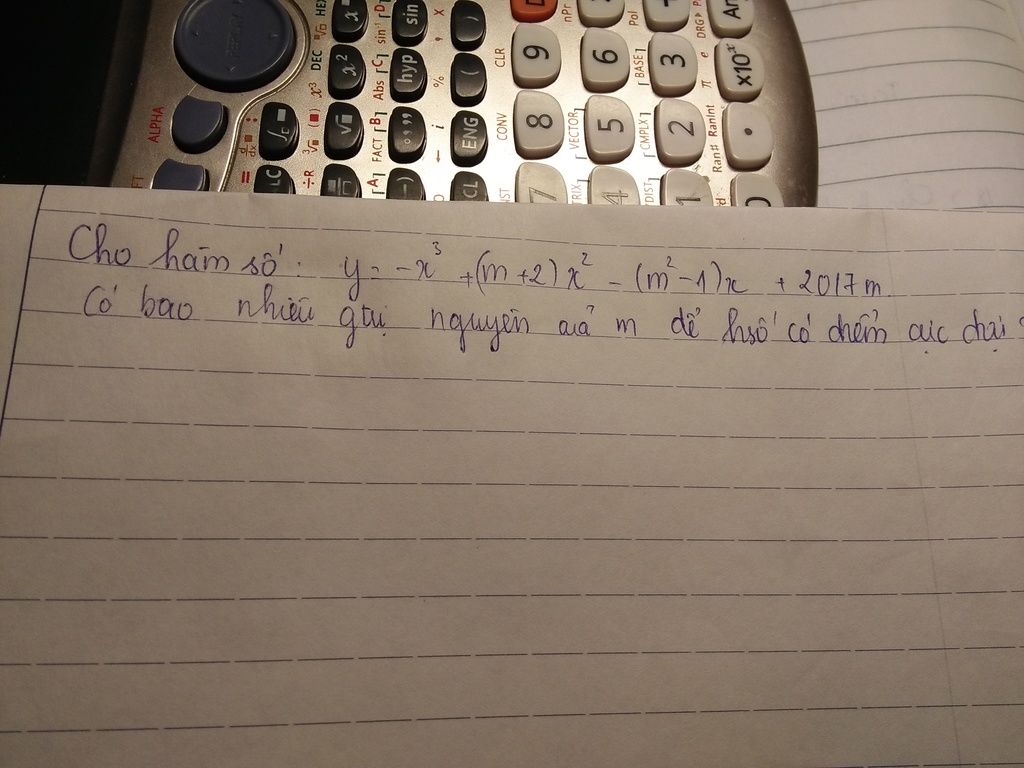 HEX
DEC
x²
sin
hyp
CLR
nPr
9
6
3
Pol
[BASE]
DRG▸
π
e
×10ˣ
ALPHA
Abs
[C]
sin⁻¹
[D]
%
(
)
FACT
[B]
ENG
i
CONV
8
[VECTOR]
5
[CMPLX]
2
Ran#
RanInt
.
÷R
[A]
7
4
1
Cho hàm số: y = -x³ + (m+2)x² - (m²-1)x + 2017m
Có bao nhiêu gtrị nguyên của m để hsố có điểm cực đại?